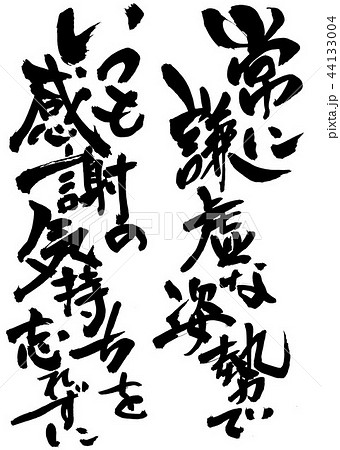 常に
謙虚な
姿勢で
いつも
感謝の
気持ちを
忘れずに
PIXTA
pixta.jp - 44133004